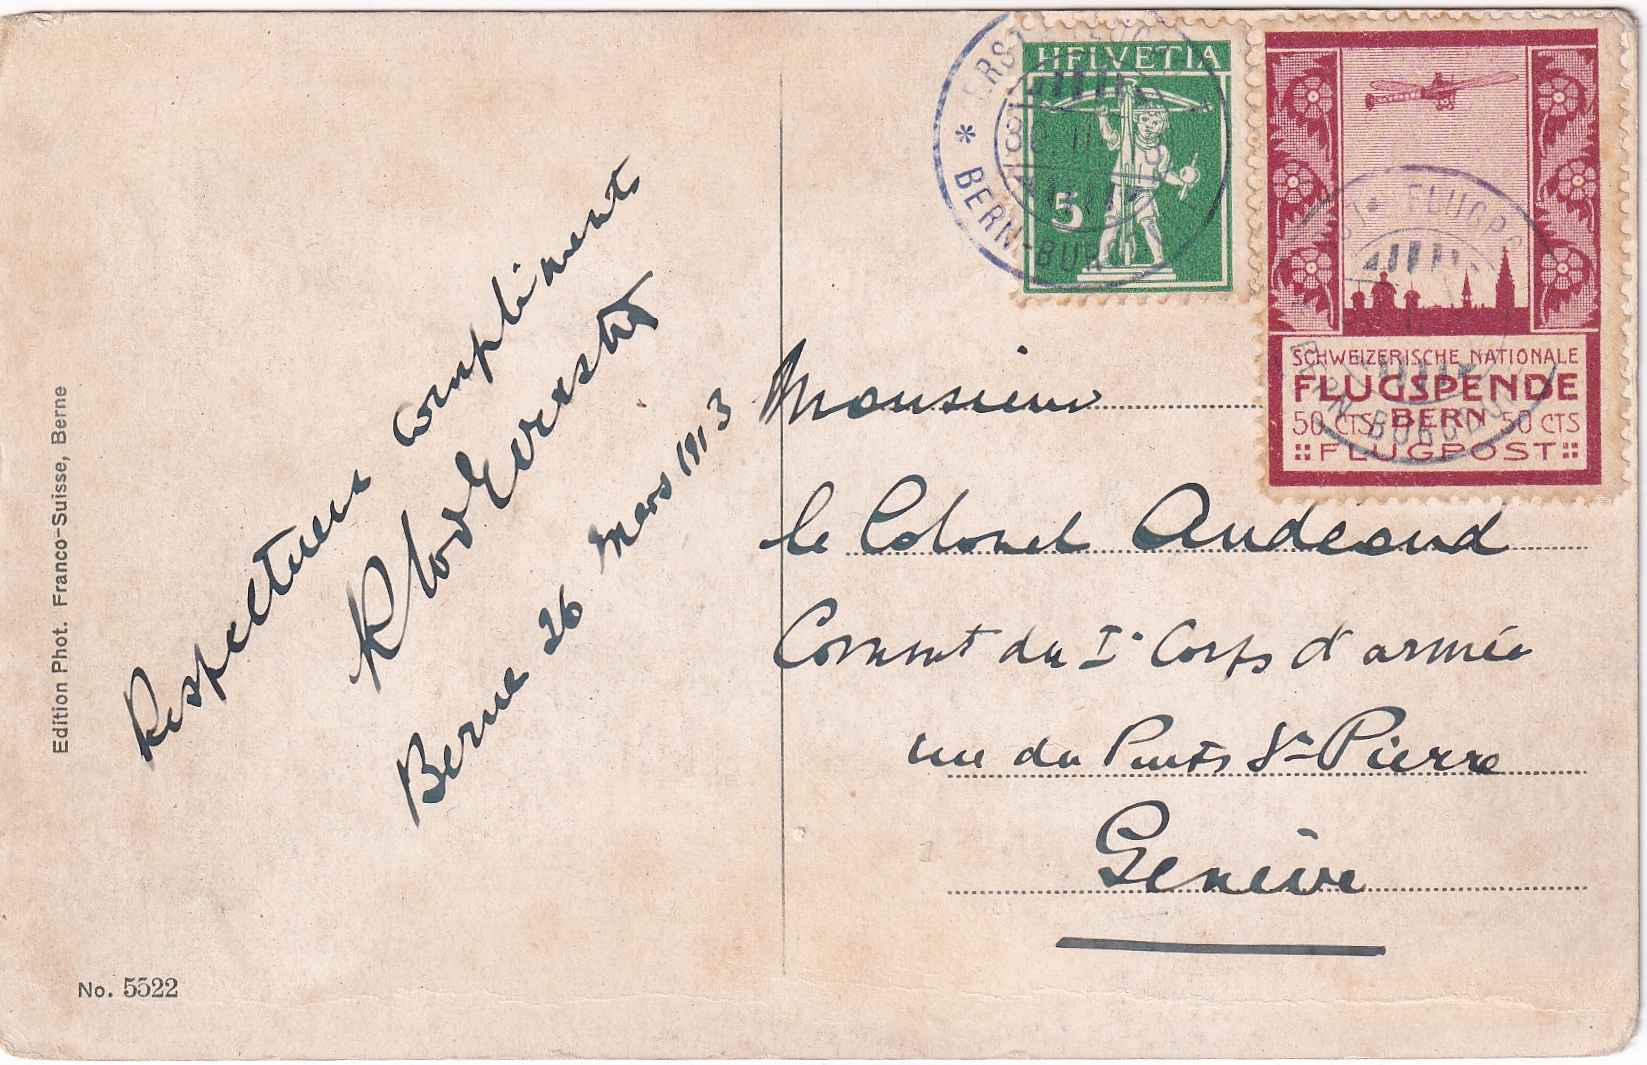 Edition Phot. Franco-Suisse, Berne
No. 5522
Respectueux compliments
Berne 26 Mars 1913
HELVETIA
5
BERN-BUR
SCHWEIZERISCHE NATIONALE
FLUGSPENDE
50 CTS BERN 50 CTS
FLUGPOST
FLUGPO
BERN-BURGDORF
Monsieur
le Colonel Audéoud
Commt du Ir Corps d'armée
rue du Puits St-Pierre
Genève